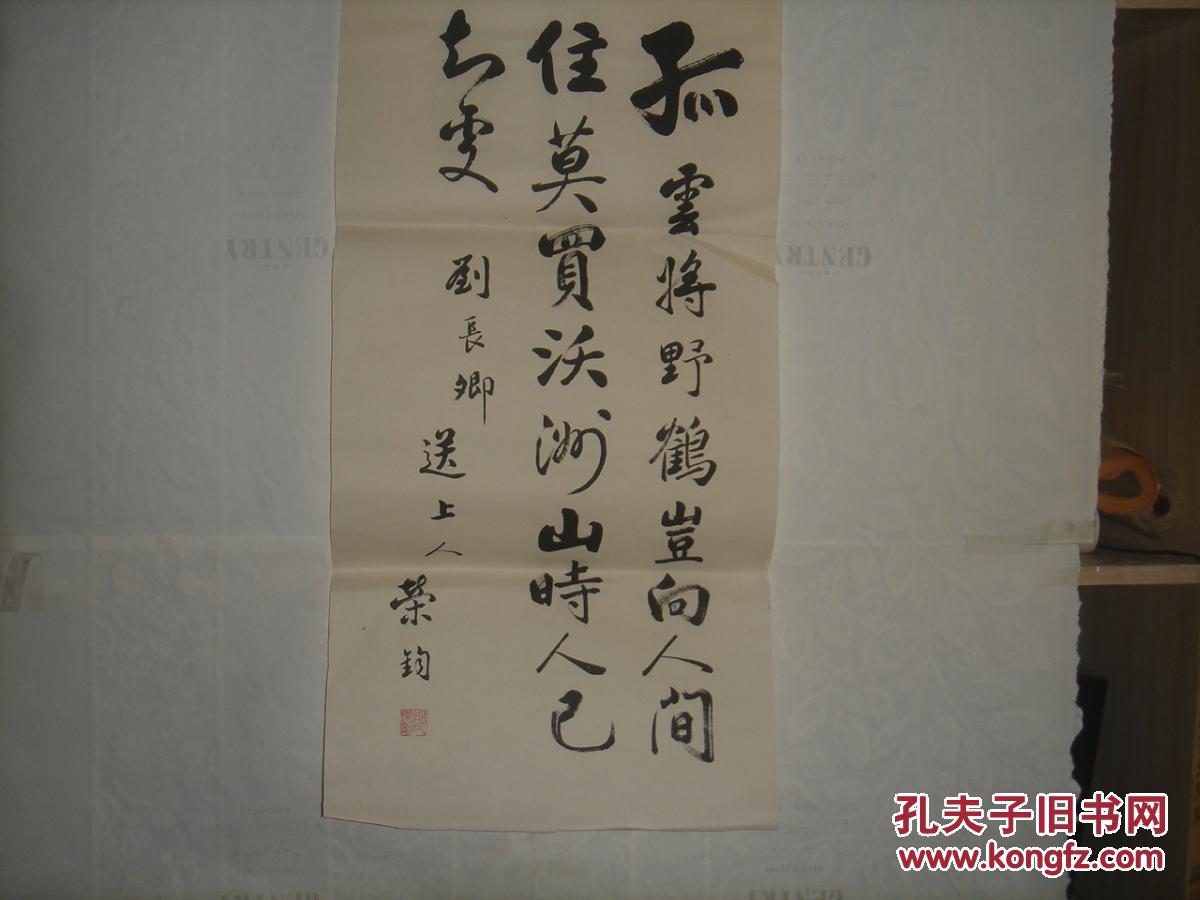 孤雲將野鶴豈向人間
住莫買沃洲山時人已
知處
劉長卿
送上人
榮鈞
GENTRY
GENTRY
孔夫子旧书网
www.kongfz.com